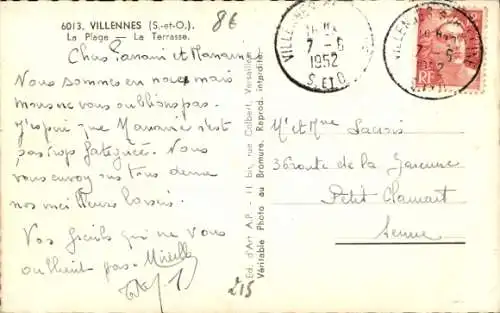 6013. VILLENNES (S.-et-O.).
La Plage — La Terrasse.
8€
Chers Parrain et Marraine
Nous sommes en noces mais
nous ne vous oublions pas.
J'espère que Marraine n'est
pas trop fatiguée. Nous
vous envoyons tous deux
nos meilleurs baisers.
Vos qui ne vous
oublient pas. Mireille
215
Ed. d'Art A.P. - 11 bis, rue Colbert, Versailles
Véritable Photo au Bromure. Reprod. interdite.
VILLENNES
7 - 6
1952
S. ET O.
VILLENNES S SEINE
7 - 6
1952
RF
Mr et Mme Lacroix
36 route de la Garenne
Petit Clamart
Seine